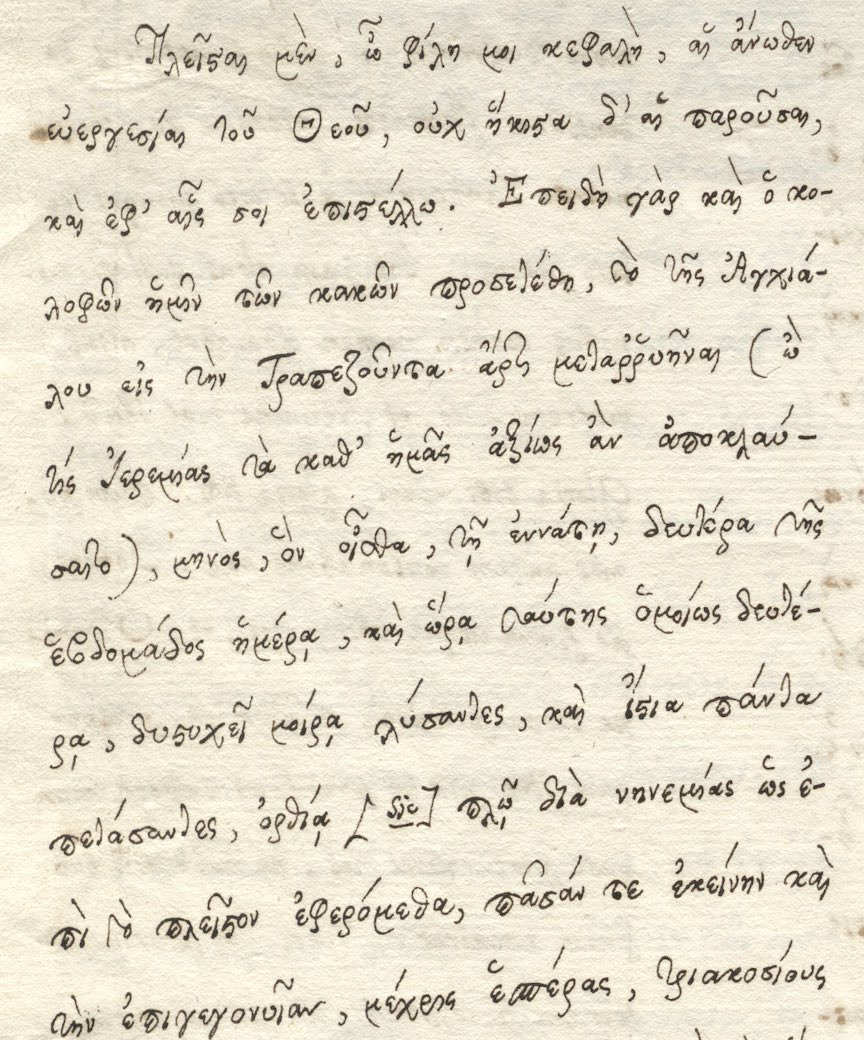 Πλεῖσται μὲν, ὦ φίλη μοι κεφαλὴ, αἱ ἄνωθεν
εὐεργεσίαι τοῦ Θεοῦ, οὐχ ἥκιστα δ' αἱ παροῦσαι,
καὶ ἐφ' αἷς σοι ἐπιστέλλω. Ἐπειδὴ γὰρ καὶ ὁ κο-
λοφὼν ἡμῖν τῶν κακῶν προσετέθη, τὸ τῆς Ἀγχιά-
λου εἰς τὴν Τραπεζοῦντα ἄρτι μεταῤῥυῆναι (ὢ
τίς Ἰερεμίας τὰ καθ' ἡμᾶς ἀξίως ἂν ἀποκλαύ-
σαιτο), μηνὸς, ὃν οἶσθα, τῇ ἐννάτῃ, δευτέρα τῆς
ἑβδομάδος ἡμέρᾳ, καὶ ὥρᾳ ταύτης ὁμοίως δευτέ-
ρᾳ, δυστυχεῖ μοίρᾳ λύσαντες, καὶ ἵστια πάντα
πετάσαντες, ὀρθίᾳ [sic] πλῷ διὰ νηνεμίας ὡς ἐ-
πὶ τὸ πλεῖστον ἐφερόμεθα, πᾶσάν τε ἐκείνην καὶ
τὴν ἐπιγεγονυῖαν, μέχρις ἑσπέρας, τριακοσίους